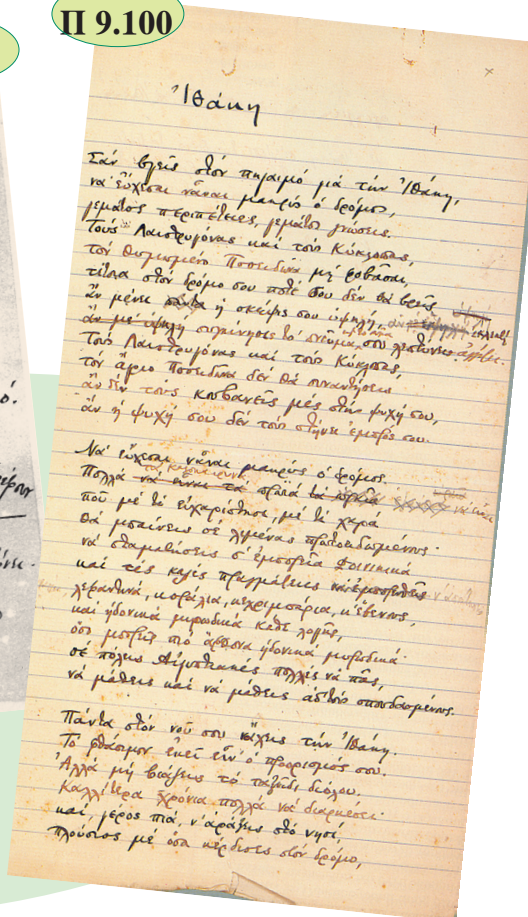 Π 9.100
Ἰθάκη
Σὰν βγεῖς στὸν πηγαιμὸ γιὰ τὴν Ἰθάκη,
νὰ εὔχεσαι νἆναι μακρὺς ὁ δρόμος,
γεμάτος περιπέτειες, γεμάτος γνώσεις.
Τοὺς Λαιστρυγόνας καὶ τοὺς Κύκλωπας,
τὸν θυμωμένο Ποσειδῶνα μὴ φοβᾶσαι,
τέτοια στὸν δρόμο σου ποτέ σου δὲν θὰ βρεῖς
ἂν μένει ἡ σκέψις σου ὑψηλή, ἐκλεκτὴ
συγκίνησις τὸ πνεῦμα σου ἀγγίζει.
Τοὺς Λαιστρυγόνας καὶ τοὺς Κύκλωπας,
τὸν ἄγριο Ποσειδῶνα δὲν θὰ συναντήσεις
ἂν δὲν τοὺς κουβανεῖς μὲς στὴν ψυχή σου,
ἂν ἡ ψυχή σου δὲν τοὺς στήνει ἐμπρός σου.
Νὰ εὔχεσαι νἆναι μακρὺς ὁ δρόμος.
Πολλὰ τὰ καλοκαιρινὰ πρωϊὰ νὰ εἶναι
ποὺ μὲ τί εὐχαρίστησι, μὲ τί χαρὰ
θὰ μπαίνεις σὲ λιμένας πρωτοειδωμένους·
νὰ σταματήσεις σ' ἐμπορεῖα Φοινικικὰ
καὶ τὲς καλὲς πραγμάτειες ν' ἀποκτήσεις
σεντέφια, κοράλλια, κεχριμπάρια, κ' ἔβενους,
καὶ ἡδονικὰ μυρωδικὰ κάθε λογῆς,
ὅσο μπορεῖς πιὸ ἄφθονα ἡδονικὰ μυρωδικά·
σὲ πόλεις Αἰγυπτιακὲς πολλὲς νὰ πᾷς,
νὰ μάθεις καὶ νὰ μάθεις ἀπ' τοὺς σπουδασμένους.
Πάντα στὸν νοῦ σου νἄχεις τὴν Ἰθάκη.
Τὸ φθάσιμον ἐκεῖ εἶν' ὁ προορισμός σου.
Ἀλλὰ μὴ βιάζεις τὸ ταξεῖδι διόλου.
Καλλίτερα χρόνια πολλὰ νὰ διαρκέσει·
καί, γέρος πιά, ν' ἀράξεις στὸ νησί,
πλούσιος μὲ ὅσα κέρδισες στὸν δρόμο,